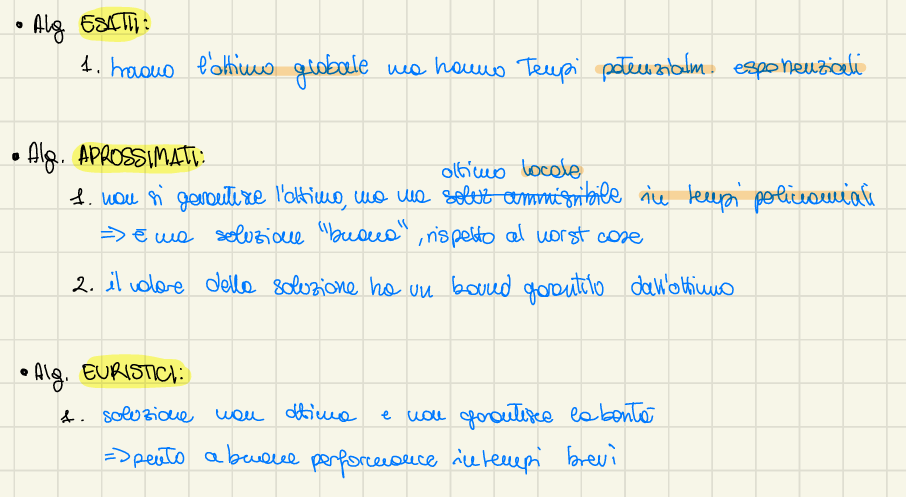 • Alg. ESATTI:
1. trovano l'ottimo globale ma hanno tempi potenzialm. esponenziali
• Alg. APROSSIMATI:
ottimo locale
1. non si garantisce l'ottimo, ma una soluz ammissibile in tempi polinomiali
=> È una soluzione "buona", rispetto al worst case
2. il valore della soluzione ha un bound garantito dall'ottimo
• Alg. EURISTICI:
1. soluzione non ottima e non garantisce la bontà
=> punto a buone performance in tempi brevi